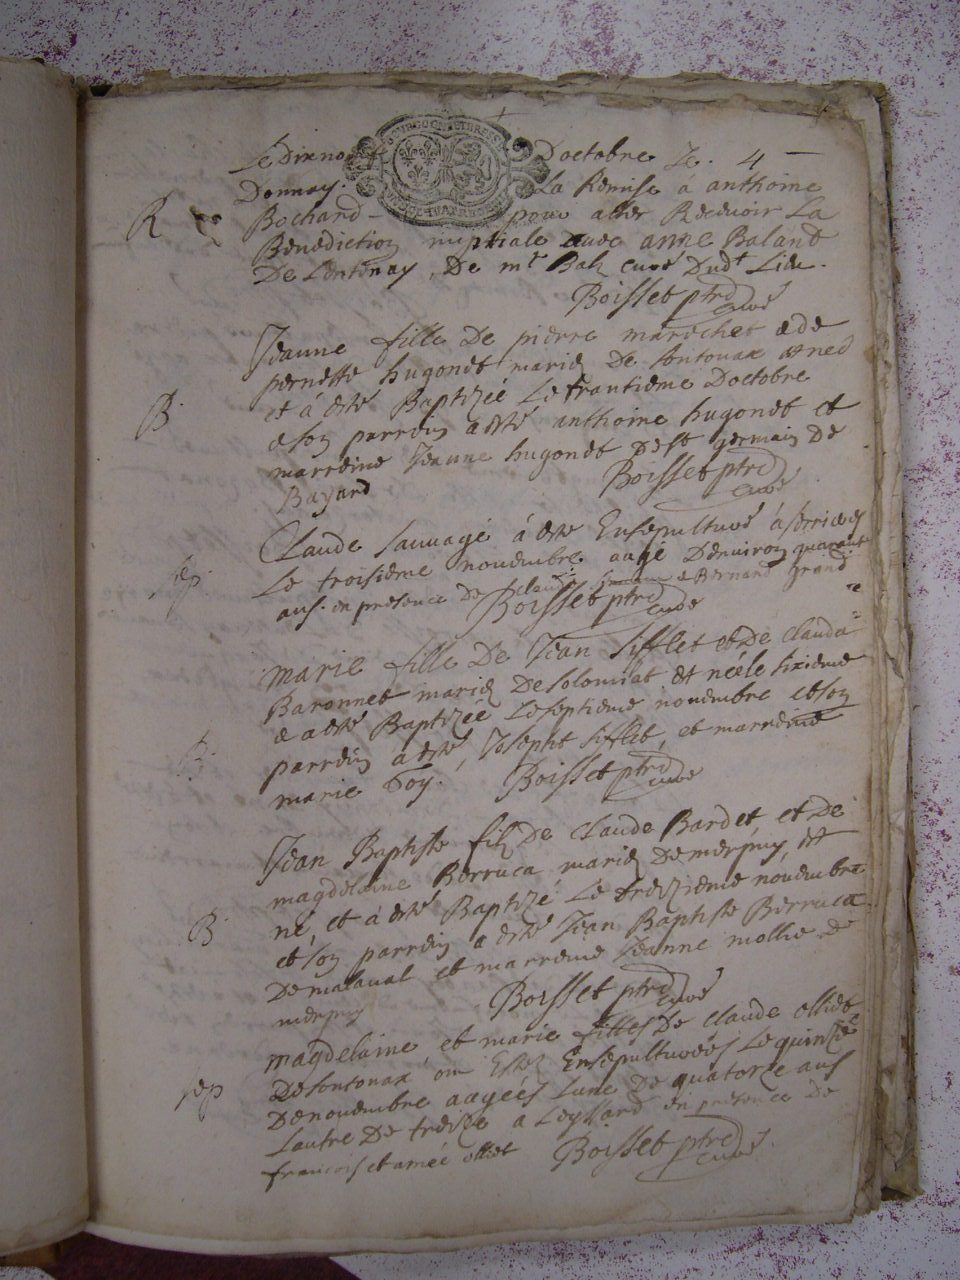 Le Dixno Doctobre Je. 4 —
Donnay. La Remise á anthoine
R Bochard - pour aller Recevoir La
Benediction nuptiale avec anne Baland
De Lentenay, De mr Balz curé Dudt Lieu.
Boisset ptre
curé
Jeanne fille De pierre marechet & de
pernette hugonet mariez De sontonax et née
B et á esté Baptizéé Le trantieme Doctobre
& son parrein a esté anthoine hugonet et
marreine Jeanne hugonet De st germain De
Bayard Boisset ptre
curé
Claude Sauvage á esté Ensepulturé á
sep. Le troisieme nouembre aagé Denuiron quarant
ans. en presence de claude & Bernand grand
Boisset ptre
curé
marie fille De Jean Sifflet et De Clauda
Baronnet mariez De solomiat et néé le sixieme
& a esté Baptizéé Le septieme nouembre et son
B. parrein á esté, Joseph Sifflet, et marreine
marie Goy. Boisset ptre
curé
Jean Baptiste filz De Claude Bardet, et De
magdelaine Berruca mariez De merpuy, et
B né, et á esté Baptizé Le treizieme nouembre
et son parrein a esté Jean Baptiste Berruca
De malaual et marreine Jeanne mollie de
merpuy Boisset ptre
curé
magdelaine, et marie filles De Claude olliet
sep De sontonax ont Estez Ensepulturéés Le quinzie
De nouembre aagéés Lune De quatorze ans
Lautre De treize a Leyssard en presence De
francois et améé olliet Boisset ptre
curé